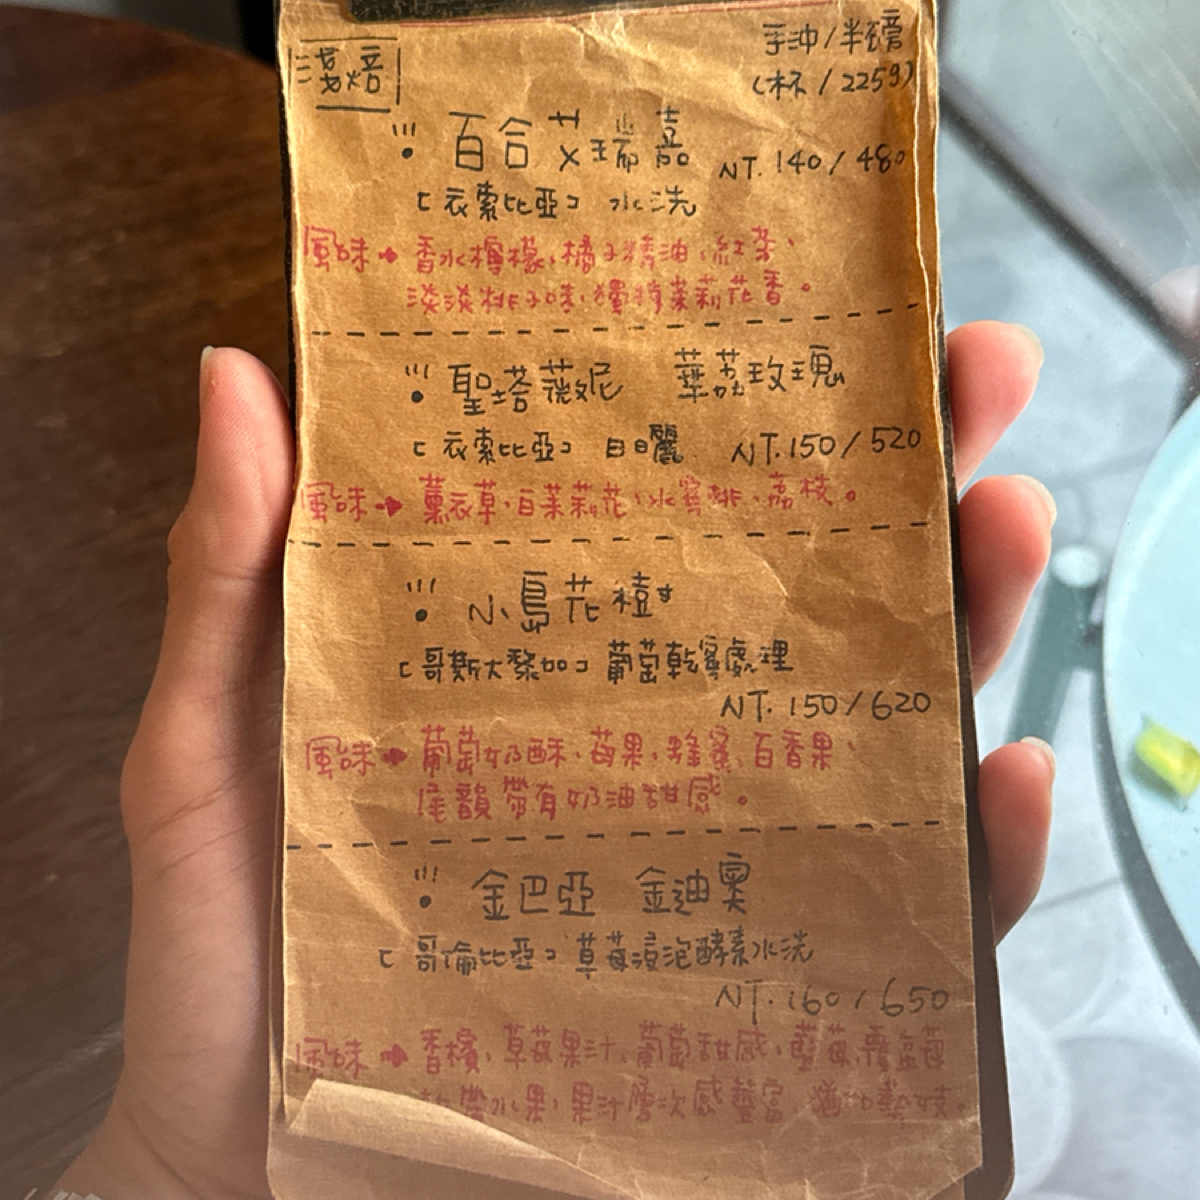 淺焙
手沖/半磅
(杯/225g)
百合艾瑞嘉 NT.140/480
[衣索比亞] 水洗
風味→香水檸檬、橘子精油、紅茶、
淡淡桃子味、獨特茉莉花香。
聖塔薇妮 華荔玫瑰
[衣索比亞] 日曬 NT.150/520
風味→薰衣草、白茉莉花、水蜜桃、荔枝。
小島花樹
[哥斯大黎加] 葡萄乾蜜處理
NT.150/620
風味→葡萄奶酥、莓果、蜂蜜、百香果、
尾韻帶有奶油甜感。
金巴亞 金迪奧
[哥倫比亞] 草莓浸泡酵素水洗
NT.160/650
風味→香檳、草莓果汁、葡萄甜感、藍莓、覆盆莓
帶水果、果汁層次感豐富